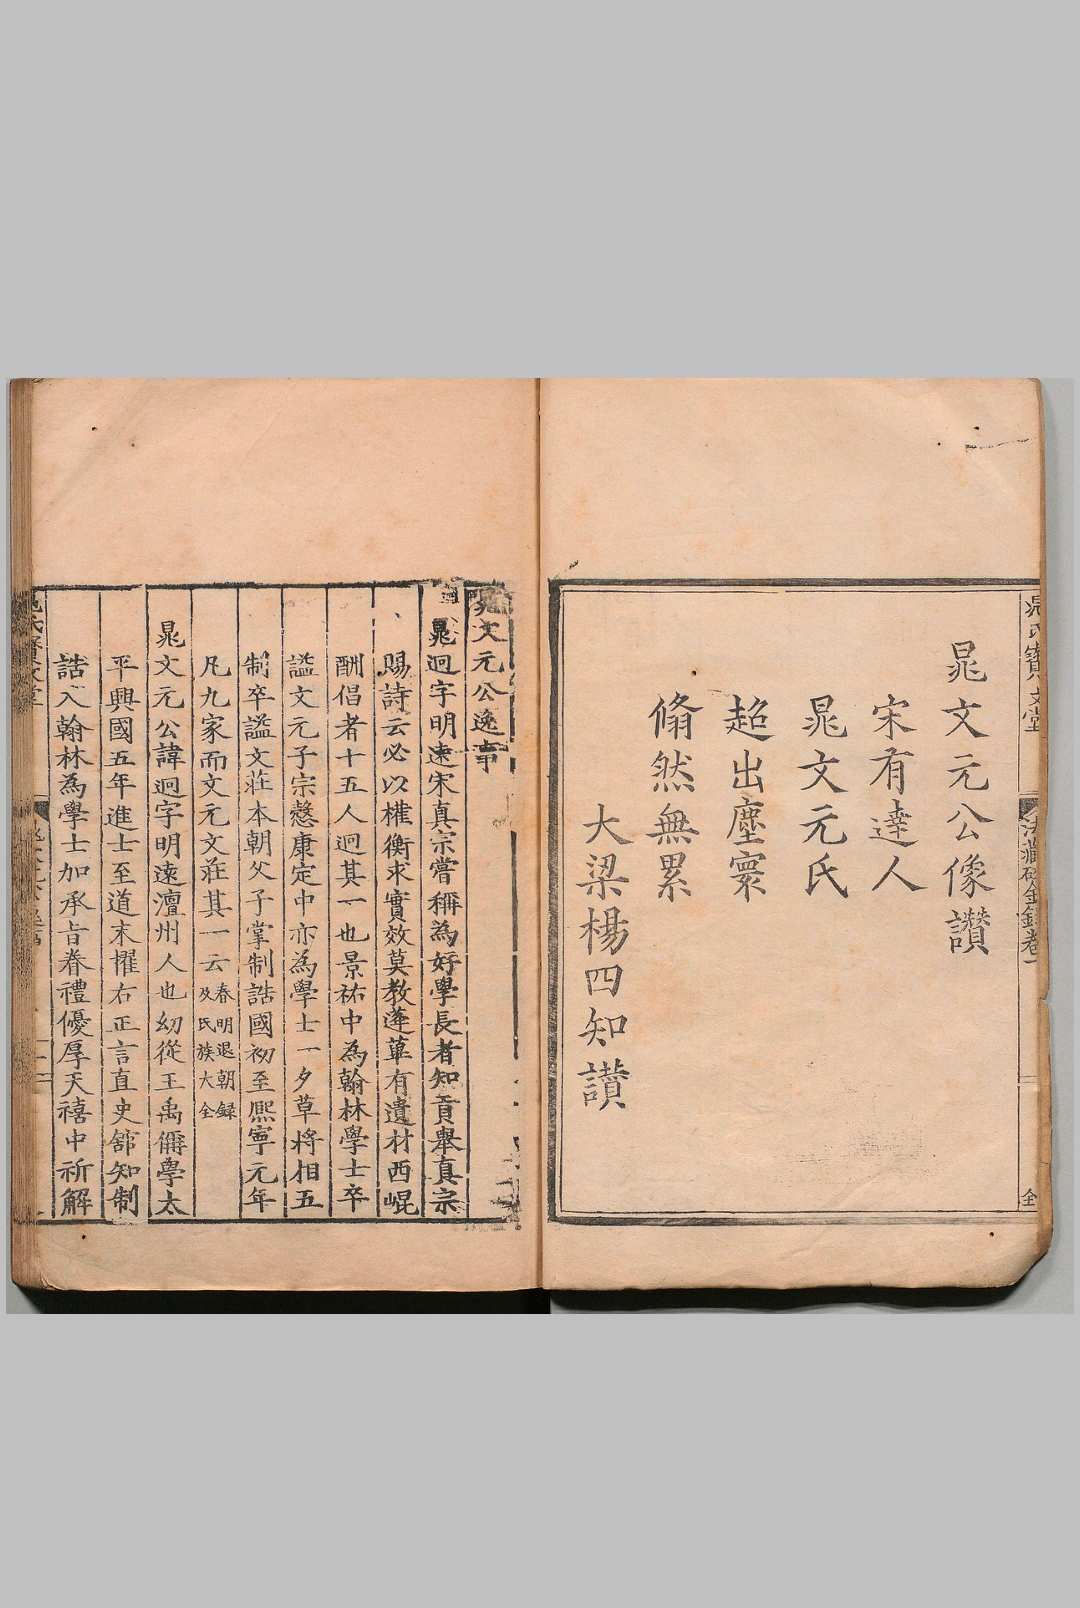 晁氏寳文堂
法藏碎金錄卷一
全
晁文元公像讃
宋有達人
晁文元氏
超出塵寰
翛然無累
大梁楊四知讃
晁文元公逸事
晁迥字明遠宋真宗嘗稱為好學長者知貢舉真宗
賜詩云必以權衡求實效莫教蓬蓽有遺材西崐
酬倡者十五人迥其一也景祐中為翰林學士卒
謚文元子宗慤康定中亦為學士一夕草將相五
制卒謚文莊本朝父子掌制誥國初至熈寧元年
凡九家而文元文莊其一云春明退朝録
及氏族大全
晁文元公諱迥字明遠澶州人也幼從王禹偁學太
平興國五年進士至道末擢右正言直史舘知制
誥入翰林為學士加承旨眷禮優厚天禧中祈解